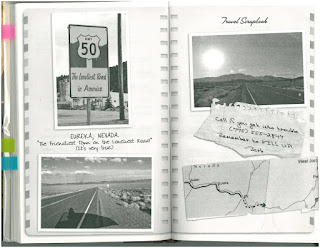 HWY
50
The Loneliest Road
in America
EUREKA, NEVADA
"The Friendliest Town on the Loneliest Road"
(It's very true)
Travel Scrapbook
Call if you get into trouble
Remember to FILL UP.
Nevada